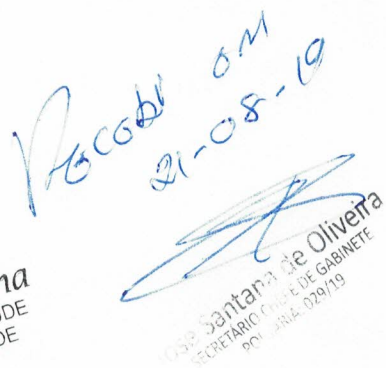 Recebi em
21-08-19
na
UDE
DE
José Santana de Oliveira
SECRETÁRIO CHEFE DE GABINETE
PORTARIA: 029/19